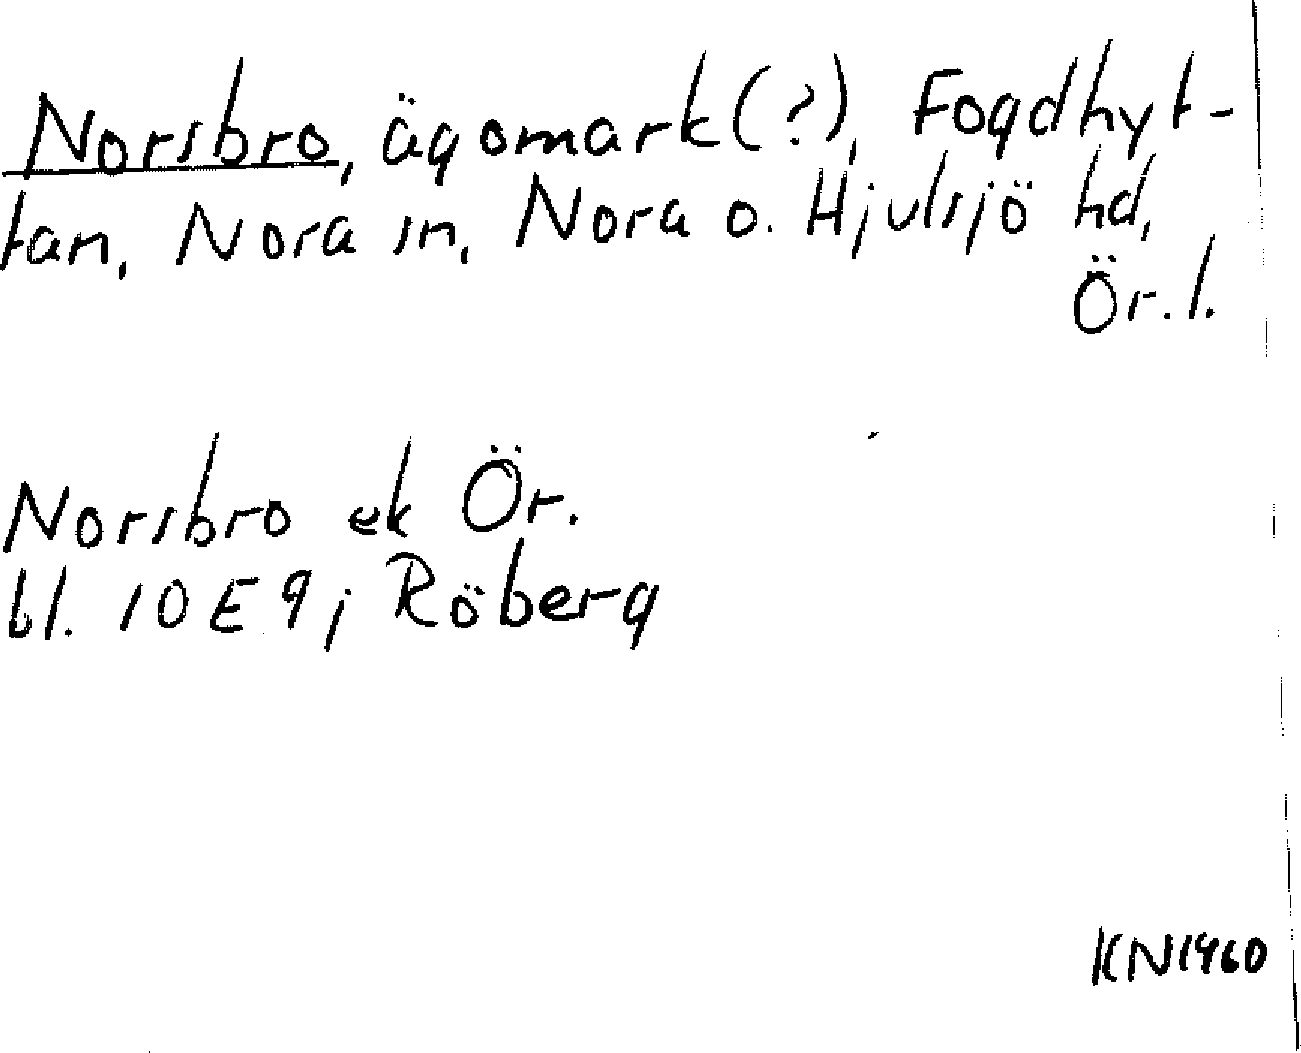 Norsbro, ägomark(?), Fogdhyt-
tan, Nora sn, Nora o. Hjulsjö hd,
Ör.l.
Norsbro ek Ör.
bl. 10 E 9 j Röberg
KN1960